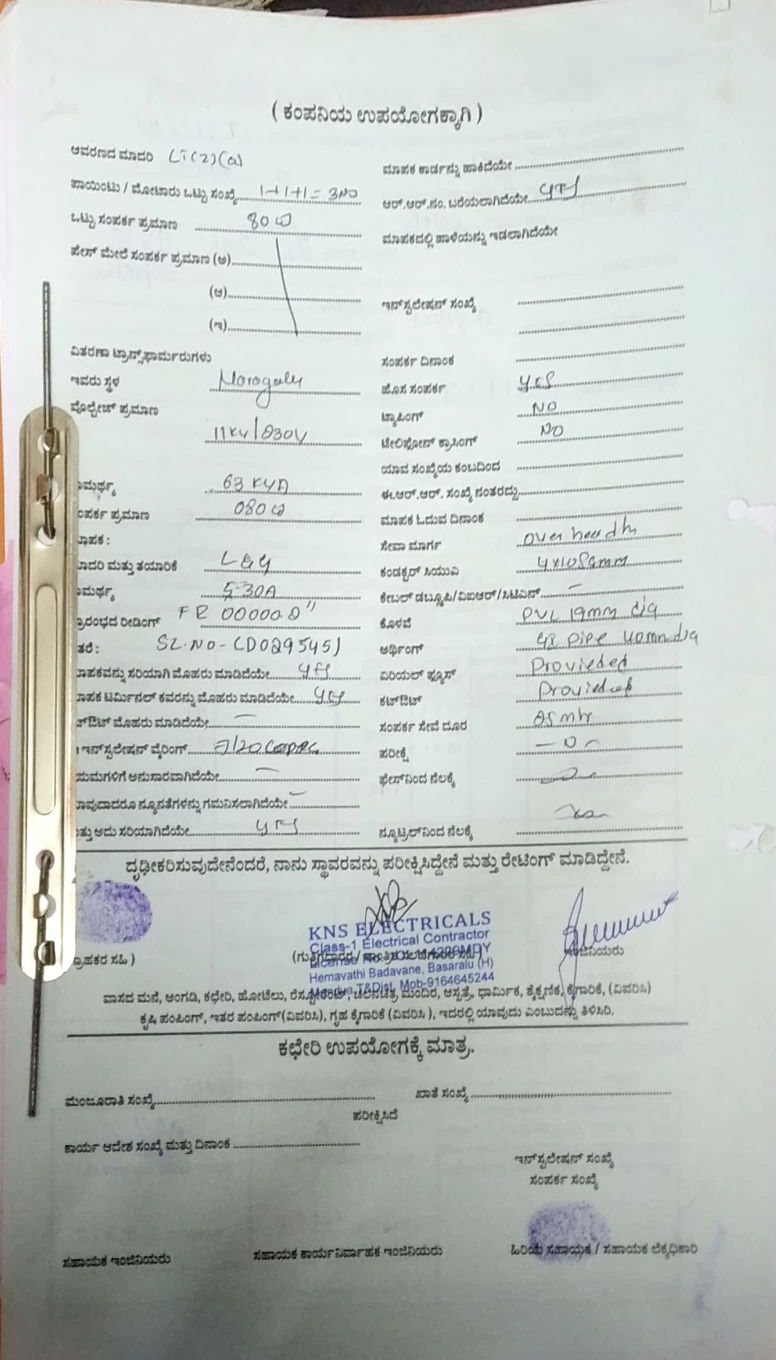 ( ಕಂಪನಿಯ ಉಪಯೋಗಕ್ಕಾಗಿ )
ಆವರಣದ ಮಾದರಿ LT(2)(a) ಮಾಪಕ ಕಾರ್ಡನ್ನು ಹಾಕಿದೆಯೇ
ಪಾಯಿಂಟು / ಮೋಟಾರು ಒಟ್ಟು ಸಂಖ್ಯೆ 1+1+1= 3NO ಆರ್.ಆರ್.ನಂ. ಬರೆಯಲಾಗಿದೆಯೇ
ಒಟ್ಟು ಸಂಪರ್ಕ ಪ್ರಮಾಣ 80W ಮಾಪಕದಲ್ಲಿ ಹಾಳೆಯನ್ನು ಇಡಲಾಗಿದೆಯೇ
ಫೇಸ್ ಮೇಲೆ ಸಂಪರ್ಕ ಪ್ರಮಾಣ (ಅ)
(ಆ) ಇನ್‌ಸ್ಟಲೇಷನ್ ಸಂಖ್ಯೆ
(ಇ)
ವಿತರಣಾ ಟ್ರಾನ್ಸ್‌ಫಾರ್ಮರುಗಳು ಸಂಪರ್ಕ ದಿನಾಂಕ
ಇವರು ಸ್ಥಳ ಹೊಸ ಸಂಪರ್ಕ yes
ವೋಲ್ಟೇಜ್ ಪ್ರಮಾಣ ಟ್ಯಾಪಿಂಗ್ NO
11KV/ ಟೇಲಿಫೋನ್ ಕ್ರಾಸಿಂಗ್ NO
ಯಾವ ಸಂಖ್ಯೆಯ ಕಂಬದಿಂದ
ಾಮರ್ಥ್ಯ 63 KVA ಈ.ಆರ್.ಆರ್. ಸಂಖ್ಯೆ ನಂತರದ್ದು
ಂಪರ್ಕ ಪ್ರಮಾಣ 080W ಮಾಪಕ ಓದುವ ದಿನಾಂಕ
ಾಪಕ : ಸೇವಾ ಮಾರ್ಗ over
ಾದರಿ ಮತ್ತು ತಯಾರಿಕೆ L&G ಕಂಡಕ್ಟರ್ ಸಿಯುವಿ 4x10Sqmm
ಾಮರ್ಥ್ಯ 5-30A ಕೇಬಲ್ ಡಬ್ಲ್ಯೂಪಿ/ವಿಐಆರ್/ಸಿಟಿಎಸ್ –
್ರಾರಂಭದ ರೀಡಿಂಗ್ FR 00000.0" ಕೊಳವೆ PVC 19mm dia
ತರೆ : SL.NO-CD0295451 ಅರ್ಥಿಂಗ್ GI Pipe 40mm dia
ಾಪಕವನ್ನು ಸರಿಯಾಗಿ ಮೊಹರು ಮಾಡಿದೆಯೇ ಏರಿಯಲ್ ಫ್ಯೂಸ್ Provieded
ಾಪಕ ಟರ್ಮಿನಲ್ ಕವರನ್ನು ಮೊಹರು ಮಾಡಿದೆಯೇ ಕಟ್‌ಔಟ್ Provieded
ಟ್‌ಔಟ್ ಮೊಹರು ಮಾಡಿದೆಯೇ – ಸಂಪರ್ಕ ಸೇವೆ ದೂರ
ಇನ್‌ಸ್ಟಲೇಷನ್ ವೈರಿಂಗ್ ಪರೀಕ್ಷೆ
ಯಮಗಳಿಗೆ ಅನುಸಾರವಾಗಿದೆಯೇ – ಫೇಸ್‌ನಿಂದ ನೆಲಕ್ಕೆ
ಾವುದಾದರೂ ನ್ಯೂನತೆಗಳನ್ನು ಗಮನಿಸಲಾಗಿದೆಯೇ –
ತ್ತು ಅದು ಸರಿಯಾಗಿದೆಯೇ ನ್ಯೂಟ್ರಲ್‌ನಿಂದ ನೆಲಕ್ಕೆ
ದೃಢೀಕರಿಸುವುದೇನೆಂದರೆ, ನಾನು ಸ್ಥಾವರವನ್ನು ಪರೀಕ್ಷಿಸಿದ್ದೇನೆ ಮತ್ತು ರೇಟಿಂಗ್ ಮಾಡಿದ್ದೇನೆ.
KNS ELECTRICALS
Class-1 Electrical Contractor
್ರಾಹಕರ ಸಹಿ ) ಇಂಜಿನಿಯರು
Hemavathi Badavane, Basaralu (H)
Mandya T&Dist, Mob-9164645244
ವಾಸದ ಮನೆ, ಅಂಗಡಿ, ಕಛೇರಿ, ಹೋಟೆಲು, ರೆಸ್ಟೋರೆಂಟ್, ಚಲನಚಿತ್ರ ಮಂದಿರ, ಆಸ್ಪತ್ರೆ, ಧಾರ್ಮಿಕ, ಶೈಕ್ಷಣಿಕ, ಕೈಗಾರಿಕೆ, (ವಿವರಿಸಿ)
ಕೃಷಿ ಪಂಪಿಂಗ್, ಇತರ ಪಂಪಿಂಗ್(ವಿವರಿಸಿ), ಗೃಹ ಕೈಗಾರಿಕೆ (ವಿವರಿಸಿ ), ಇದರಲ್ಲಿ ಯಾವುದು ಎಂಬುದನ್ನು ತಿಳಿಸಿರಿ.
ಕಛೇರಿ ಉಪಯೋಗಕ್ಕೆ ಮಾತ್ರ.
ಮಂಜೂರಾತಿ ಸಂಖ್ಯೆ ಖಾತೆ ಸಂಖ್ಯೆ
ಪರೀಕ್ಷಿಸಿದೆ
ಕಾರ್ಯ ಆದೇಶ ಸಂಖ್ಯೆ ಮತ್ತು ದಿನಾಂಕ
ಇನ್‌ಸ್ಟಲೇಷನ್ ಸಂಖ್ಯೆ
ಸಂಪರ್ಕ ಸಂಖ್ಯೆ
ಸಹಾಯಕ ಇಂಜಿನಿಯರು ಸಹಾಯಕ ಕಾರ್ಯನಿರ್ವಾಹಕ ಇಂಜಿನಿಯರು ಹಿರಿಯ ಸಹಾಯಕ / ಸಹಾಯಕ ಲೆಕ್ಕಧಿಕಾರಿ